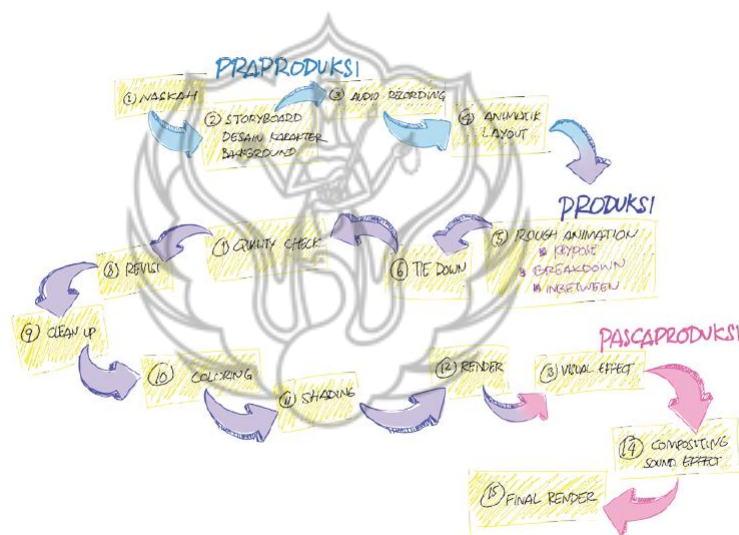 PRAPRODUKSI
① NASKAH
② STORYBOARD
DESAIN KARAKTER
BACKGROUND
③ AUDIO RECORDING
④ ANIMATIK
LAYOUT
PRODUKSI
⑤ ROUGH ANIMATION
KEYPOSE
BREAKDOWN
INBETWEEN
⑥ TIE DOWN
⑦ QUALITY CHECK
⑧ REVISI
⑨ CLEAN UP
⑩ COLORING
⑪ SHADING
⑫ RENDER
PASCAPRODUKSI
⑬ VISUAL EFFECT
⑭ COMPOSITING
SOUND EFFECT
⑮ FINAL RENDER